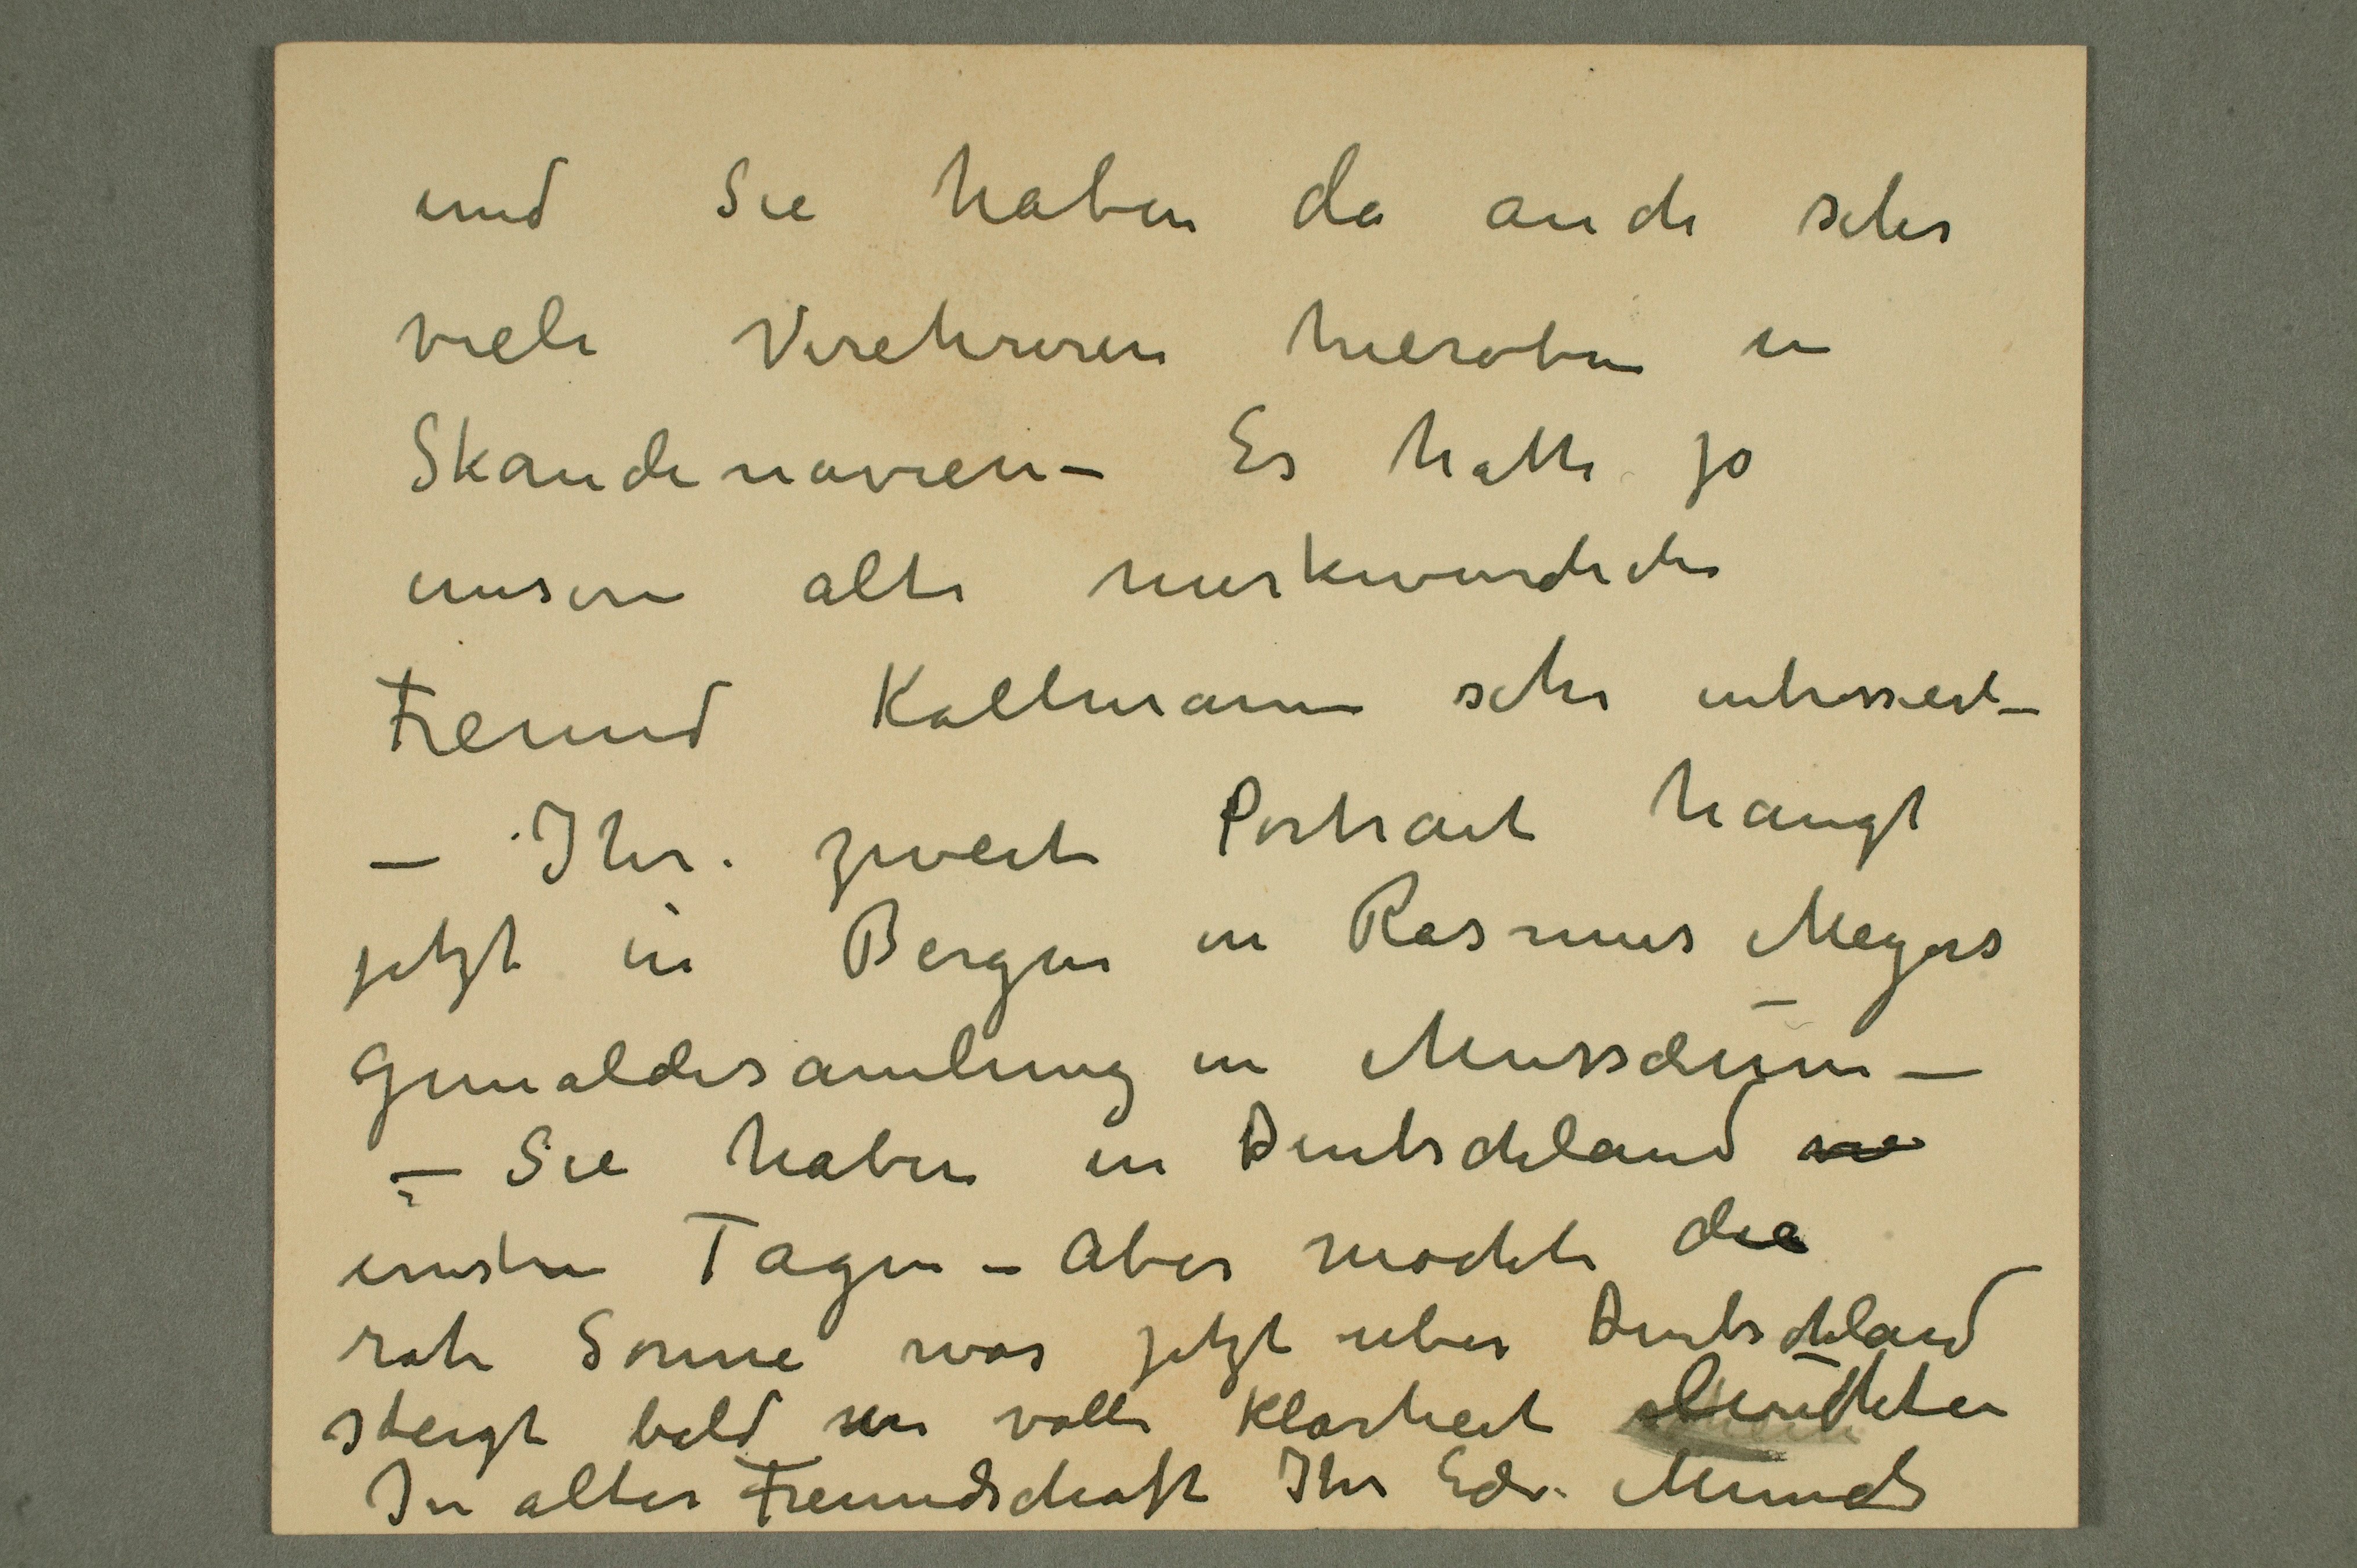 und Sie haben da auch sehr
viele Verehreren hieroben in
Skandinavien – Es hatte ja
unsern alte merkwurdiche
Freund Kollmann sehr intressiert –
– Ihr zweite Portrait hängt
jetzt in Bergen in Rasmus Meyers
Gemaldesamlung in Mussæum –
– Sie haben in Deutschland
ernsten Tagen – Aber mochte die
rote Sonne was jetzt uber Deutschland
steigt bald in volle Klarheit leuchten
In alter Freundschaft Ihr Edv. Munch